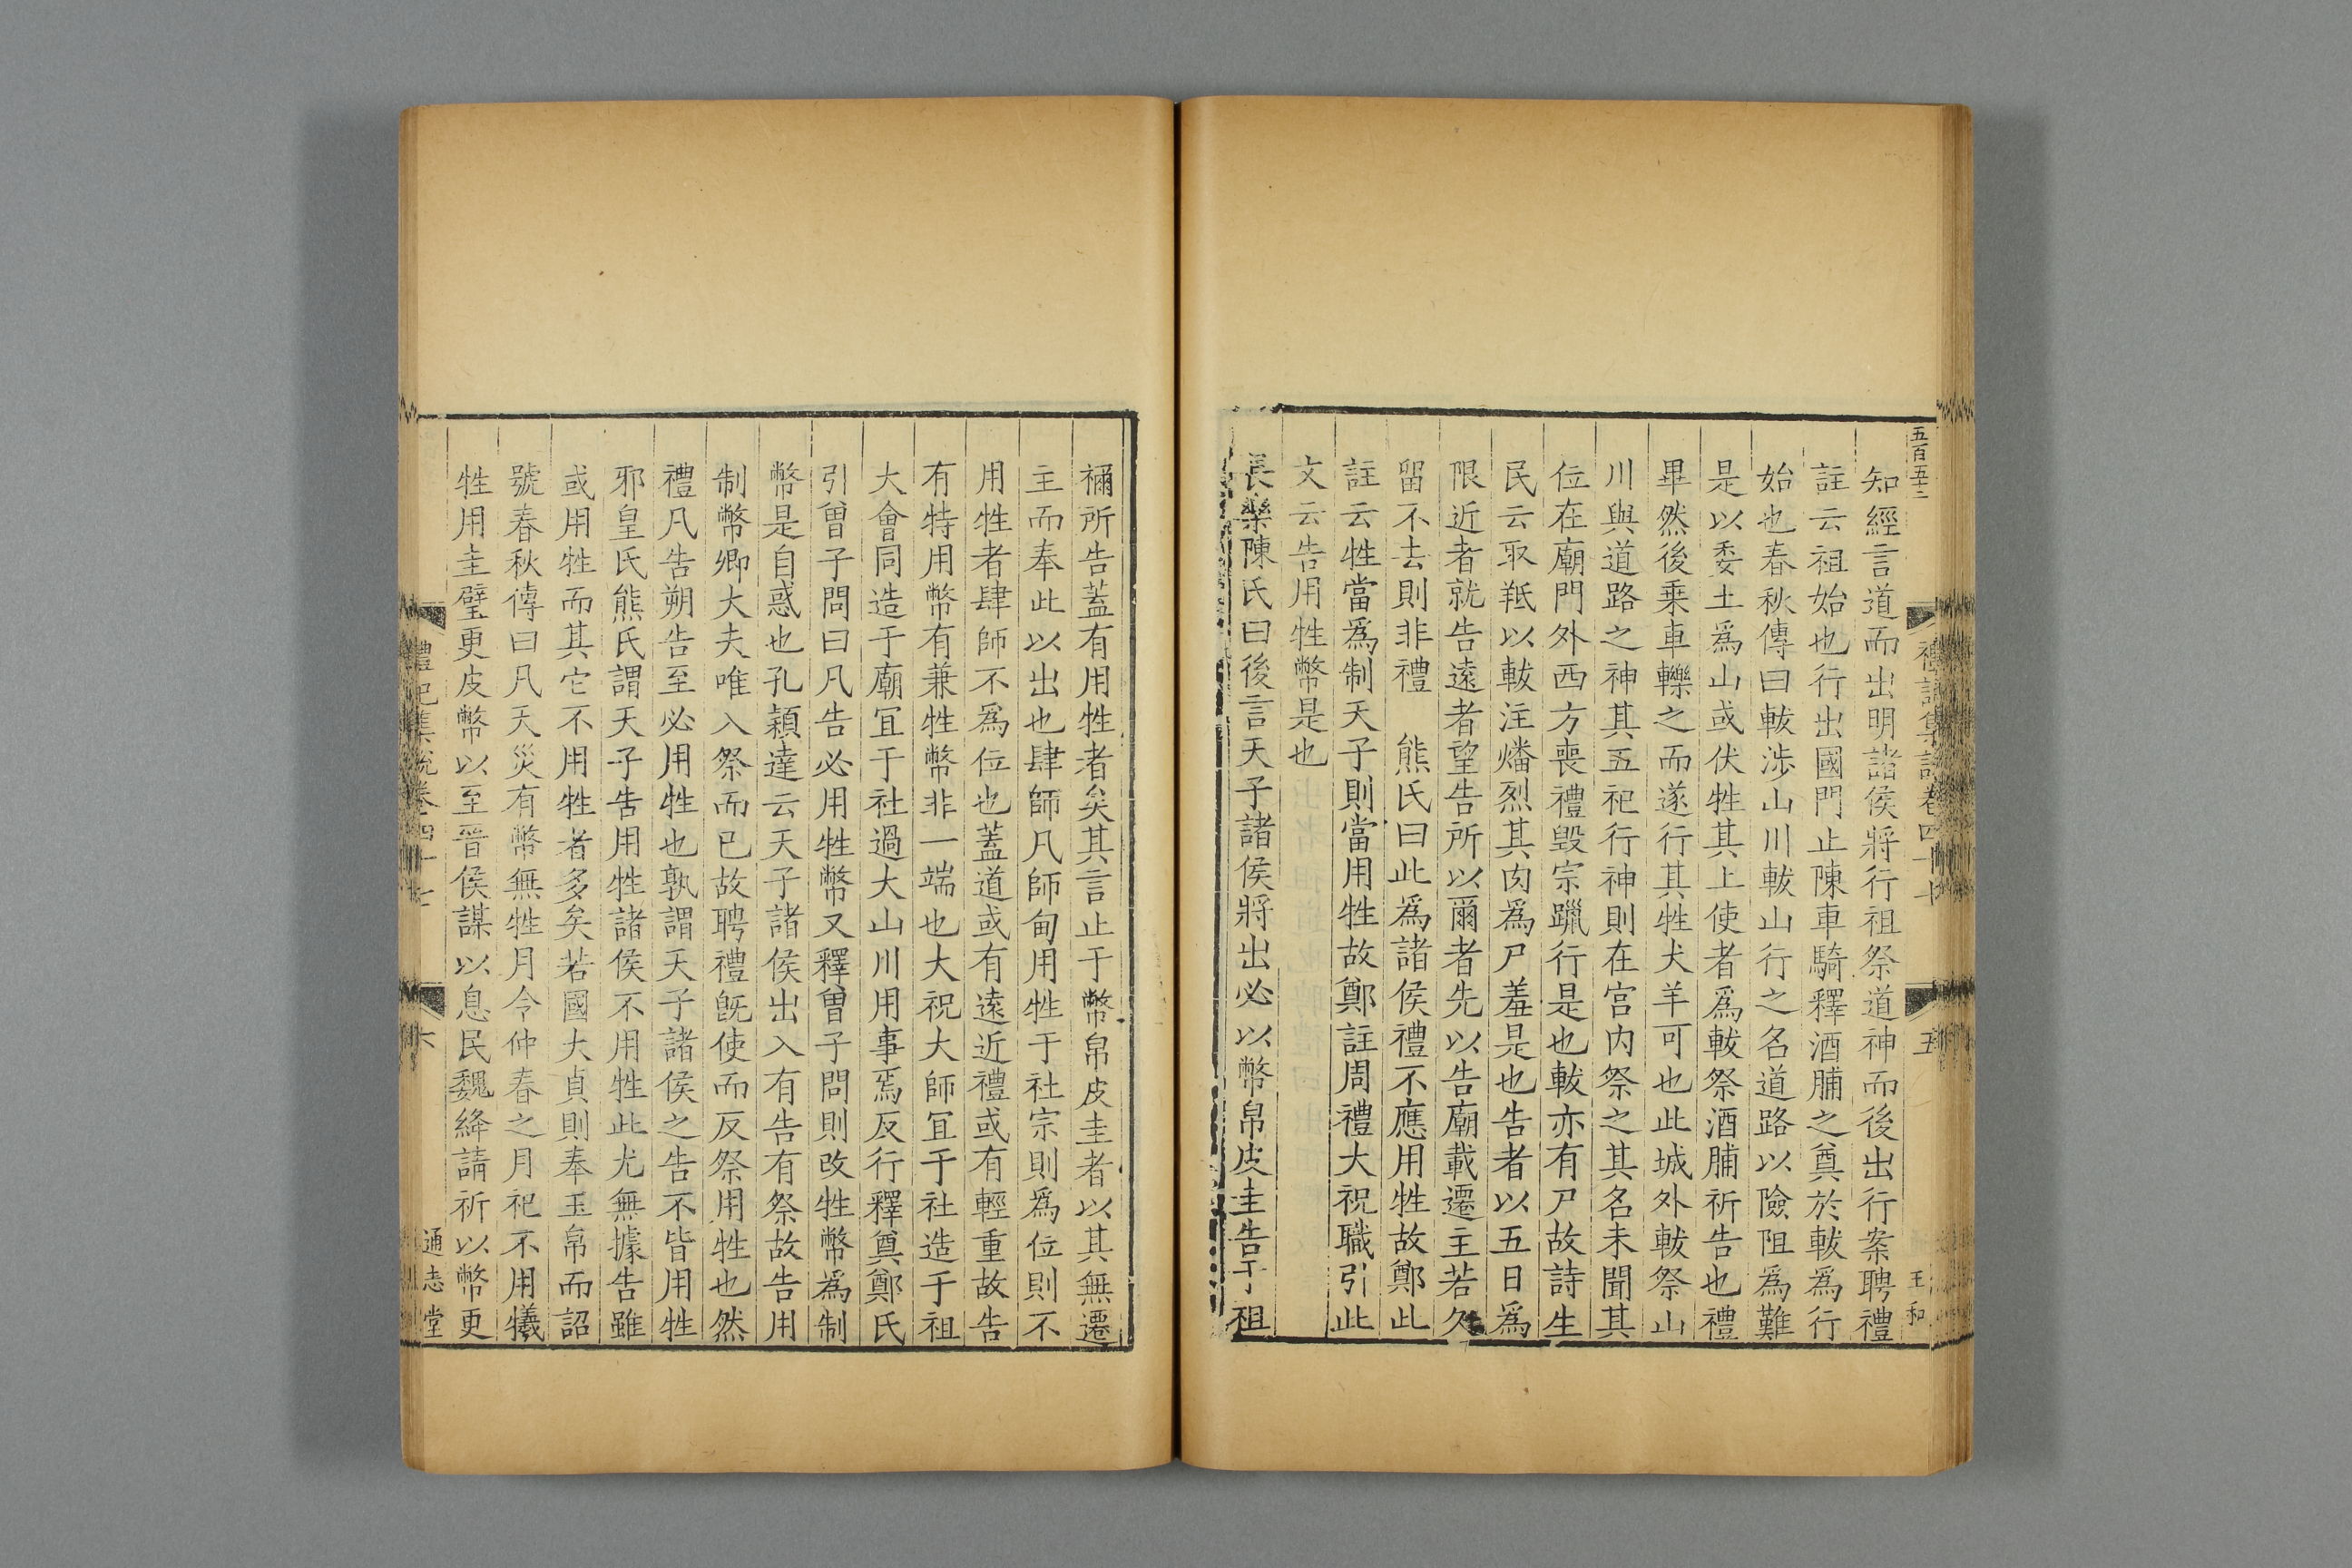 五百五十二
禮記集說卷四十七
五
王和
知經言道而出明諸侯將行祖祭道神而後出行案聘禮
註云祖始也行出國門止陳車騎釋酒脯之奠於軷為行
始也春秋傳曰軷涉山川軷山行之名道路以險阻為難
是以委土為山或伏牲其上使者爲軷祭酒脯祈告也禮
畢然後乗車轢之而遂行其牲犬羊可也此城外軷祭山
川與道路之神其五祀行神則在宫内祭之其名未聞其
位在廟門外西方喪禮毀宗躐行是也軷亦有尸故詩生
民云取羝以軷注燔烈其肉爲尸羞是也告者以五日爲
限近者就告遠者望告所以爾者先以告廟載遷主若久
留不去則非禮　熊氏曰此爲諸侯禮不應用牲故鄭此
註云牲當爲制天子則當用牲故鄭註周禮大祝職引此
文云告用牲幣是也
長樂陳氏曰後言天子諸侯將出必以幣帛皮圭告于祖
禰所告蓋有用牲者矣其言止于幣帛皮圭者以其無遷
主而奉此以出也肆師凡師甸用牲于社宗則爲位則不
用牲者肆師不爲位也蓋道或有遠近禮或有輕重故告
有特用幣有兼牲幣非一端也大祝大師宜于社造于祖
大會同造于廟宜于社過大山川用事焉反行釋奠鄭氏
引曾子問曰凡告必用牲幣又釋曾子問則改牲幣爲制
幣是自惑也孔穎達云天子諸侯出入有告有祭故告用
制幣卿大夫唯入祭而已故聘禮旣使而反祭用牲也然
禮凡告朔告至必用牲也孰謂天子諸侯之告不皆用牲
邪皇氏熊氏謂天子告用牲諸侯不用牲此尤無據告雖
或用牲而其它不用牲者多矣若國大貞則奉玉帛而詔
號春秋傳曰凡天災有幣無牲月令仲春之月祀不用犧
牲用圭璧更皮幣以至晉侯謀以息民魏絳請祈以幣更
禮記集說卷四十七
六
通志堂